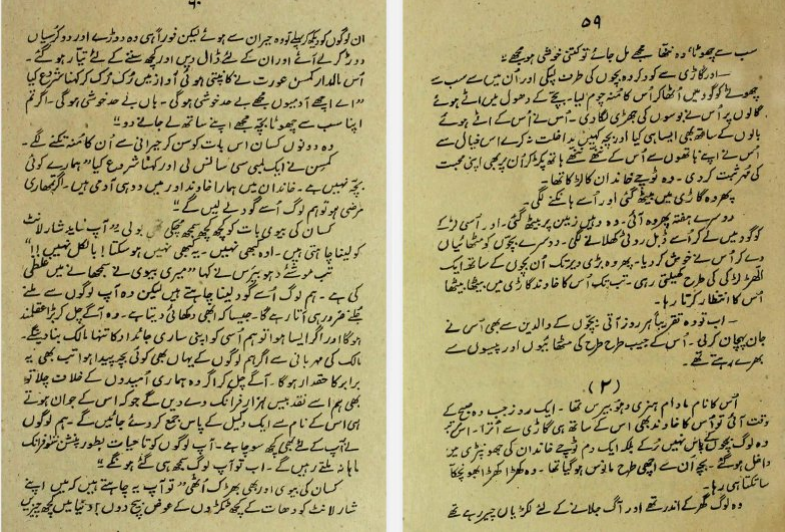 ۵۹
سب سے چھوٹا، وہ ننھا مجھے مل جائے تو کتنی خوشی ہو مجھے"
— اور گاڑی سے کود کر وہ بچوں کی طرف لپکی اور اُن میں سے سب سے
چھوٹے کو گود میں اُٹھا کر اُس کا منہ چوم لیا۔ بچے کے دھول میں اٹے ہوئے
گالوں پر اُس نے بوسوں کی جھڑی لگا دی۔ اُس نے اُس کے اٹے ہوئے
بالوں کے ساتھ بھی ایسا ہی کیا اور بچہ کہیں مداخلت نہ کرے اس خیال سے
اُس نے اپنے ہاتھوں سے اُس کے ننھے ننھے ہاتھ پکڑ کر اُن پر بھی اپنی محبت
کی مُہر ثبت کر دی۔ وہ ٹوچے خاندان کا لڑکا تھا۔
پھر وہ گاڑی میں بیٹھ گئی اور اُسے ہانکنے لگی۔
دوسرے ہفتہ پھر وہ آئی۔ وہ وہیں زمین پر بیٹھ گئی۔ اور اُسی لڑکے
کو گود میں لے کر اُسے ڈبل روٹی کھلانے لگی۔ دوسرے بچوں کو مٹھائیاں
دے کر اُس نے خوش کر دیا۔ پھر وہ بڑی دیر تک اُن بچوں کے ساتھ ایک
الھڑ لڑکی کی طرح کھیلتی رہی۔ تب تک اُس کا خاوند گاڑی میں بیٹھا بیٹھا
اُس کا انتظار کرتا رہا۔
— اب تو وہ تقریباً ہر روز آتی بچوں کے والدین سے بھی اُس نے
جان پہچان کر لی۔ اُس کے جیب طرح طرح کی مٹھائیوں اور پیسوں سے
بھرے رہتے تھے۔
(۲)
اُس کا نام مادام ہنری دہوبیرس تھا۔ ایک روز جب وہ صبح کے
وقت آئی تو اُس کا خاوند بھی اُس کے ساتھ ہی گاڑی سے اُترا۔ اس بار
وہ لوگ بچوں کے پاس نہیں رُکے بلکہ ایک دم ٹوچے خاندان کی جھونپڑی میں
داخل ہو گئے۔ بچہ اُن سے اچھی طرح مانوس ہو گیا تھا۔ وہ کھڑا کھڑا بھونچکا
سا تکتا ہی رہا۔
وہ لوگ گھر کے اندر تھے اور آگ جلانے کے لئے لکڑیاں چیر رہے تھے
۶۰
ان لوگوں کو دیکھ کر پہلے تو وہ حیران سے ہوئے لیکن فوراً ہی وہ دوڑے اور دو کرسیاں
دوڑ کر لے آئے اور ان کے لئے ڈال دیں اور کچھ سننے کے لئے تیار ہو گئے۔
اُس مالدار کمسن عورت نے کانپتی ہوئی آواز میں رُک رُک کر کہنا شروع کیا
"اے اچھے آدمیوں مجھے بے حد خوشی ہوگی۔ ہاں بے حد خوشی ہوگی۔ اگر تم
اپنا سب سے چھوٹا بچہ مجھے اپنے ساتھ لے جانے دو"
وہ دونوں کسان اس بات کو سن کر حیرانی سے اُن کا منہ تکنے لگے۔
کمسن نے ایک لمبی سی سانس لی اور کہنا شروع کیا "ہمارے کوئی
بچہ نہیں ہے۔ خاندان میں ہمارا خاوند اور میں دو ہی آدمی ہیں۔ اگر تمھاری
مرضی ہو تو ہم لوگ اُسے گود لے لیں گے"
کسان کی بیوی بات کو کچھ کچھ سمجھ چکی تھی بولی "آپ شاید شارلانٹ
کو لینا چاہتی ہیں۔ اوہ کبھی نہیں۔ یہ کبھی نہیں ہو سکتا! بالکل نہیں!!"
تب موشئے دہوبیرس نے کہا "میری بیوی نے سمجھانے میں غلطی
کی ہے۔ ہم لوگ اُسے گود لینا چاہتے ہیں لیکن وہ آپ لوگوں سے ملنے
جلنے ضرور ہی آتا رہے گا۔ جیسا کہ ابھی دکھائی دیتا ہے۔ وہ آگے چل کر بڑا عقلمند
ہوگا اور اگر ایسا ہوا تو ہم اُسی کو اپنی ساری جائداد کا تنہا مالک بنا دینگے۔
مالک کی مہربانی سے اگر ہم لوگوں کے یہاں بھی کوئی بچہ پیدا ہوا تب بھی یہ
برابر کا حقدار ہوگا۔ آگے چل کے اگر وہ ہماری اُمیدوں کے خلاف چلا تو
بھی ہم اسے نقد بیس ہزار فرانک دے دیں گے جو کہ اس کے جوان ہوتے
ہی اس کے نام سے ایک وکیل کے پاس جمع کر دئے جائیں گے۔ ہم لوگوں
نے آپ کے لئے بھی کچھ سوچا ہے۔ آپ لوگوں کو تا حیات بطور پنشن سو فرانک
ماہانہ ملتے رہیں گے۔ اب تو آپ لوگ سمجھ ہی گئے ہونگے"
کسان کی بیوی اور بھی بھڑک اُٹھی "تو آپ یہ چاہتے ہیں کہ میں اپنے
شارلانٹ کو دھات کے کچھ ٹکڑوں کے عوض بیچ دوں؟ دنیا میں کچھ چیزیں